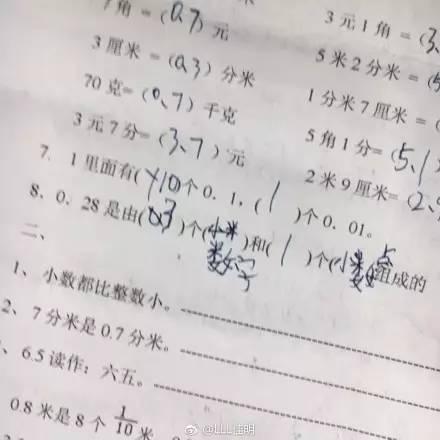 7角=(0.7)元
3元1角=(3.
3厘米=(0.3)分米
5米2分米=(5
70克=(0.7)千克
1分米7厘米=(
3元7分=(3.7)元
5角1分=(5.1)
2米9厘米=(2.9
7、1里面有(10)个0.1,(1)个0.01。
8、0.28是由(0.3)个(小米数字)和(1)个(小米数点)组成的
二、
1、小数都比整数小。
2、7分米是0.7分米。
、6.5读作:六五。
0.8米是8个1/10米
@LLL建明